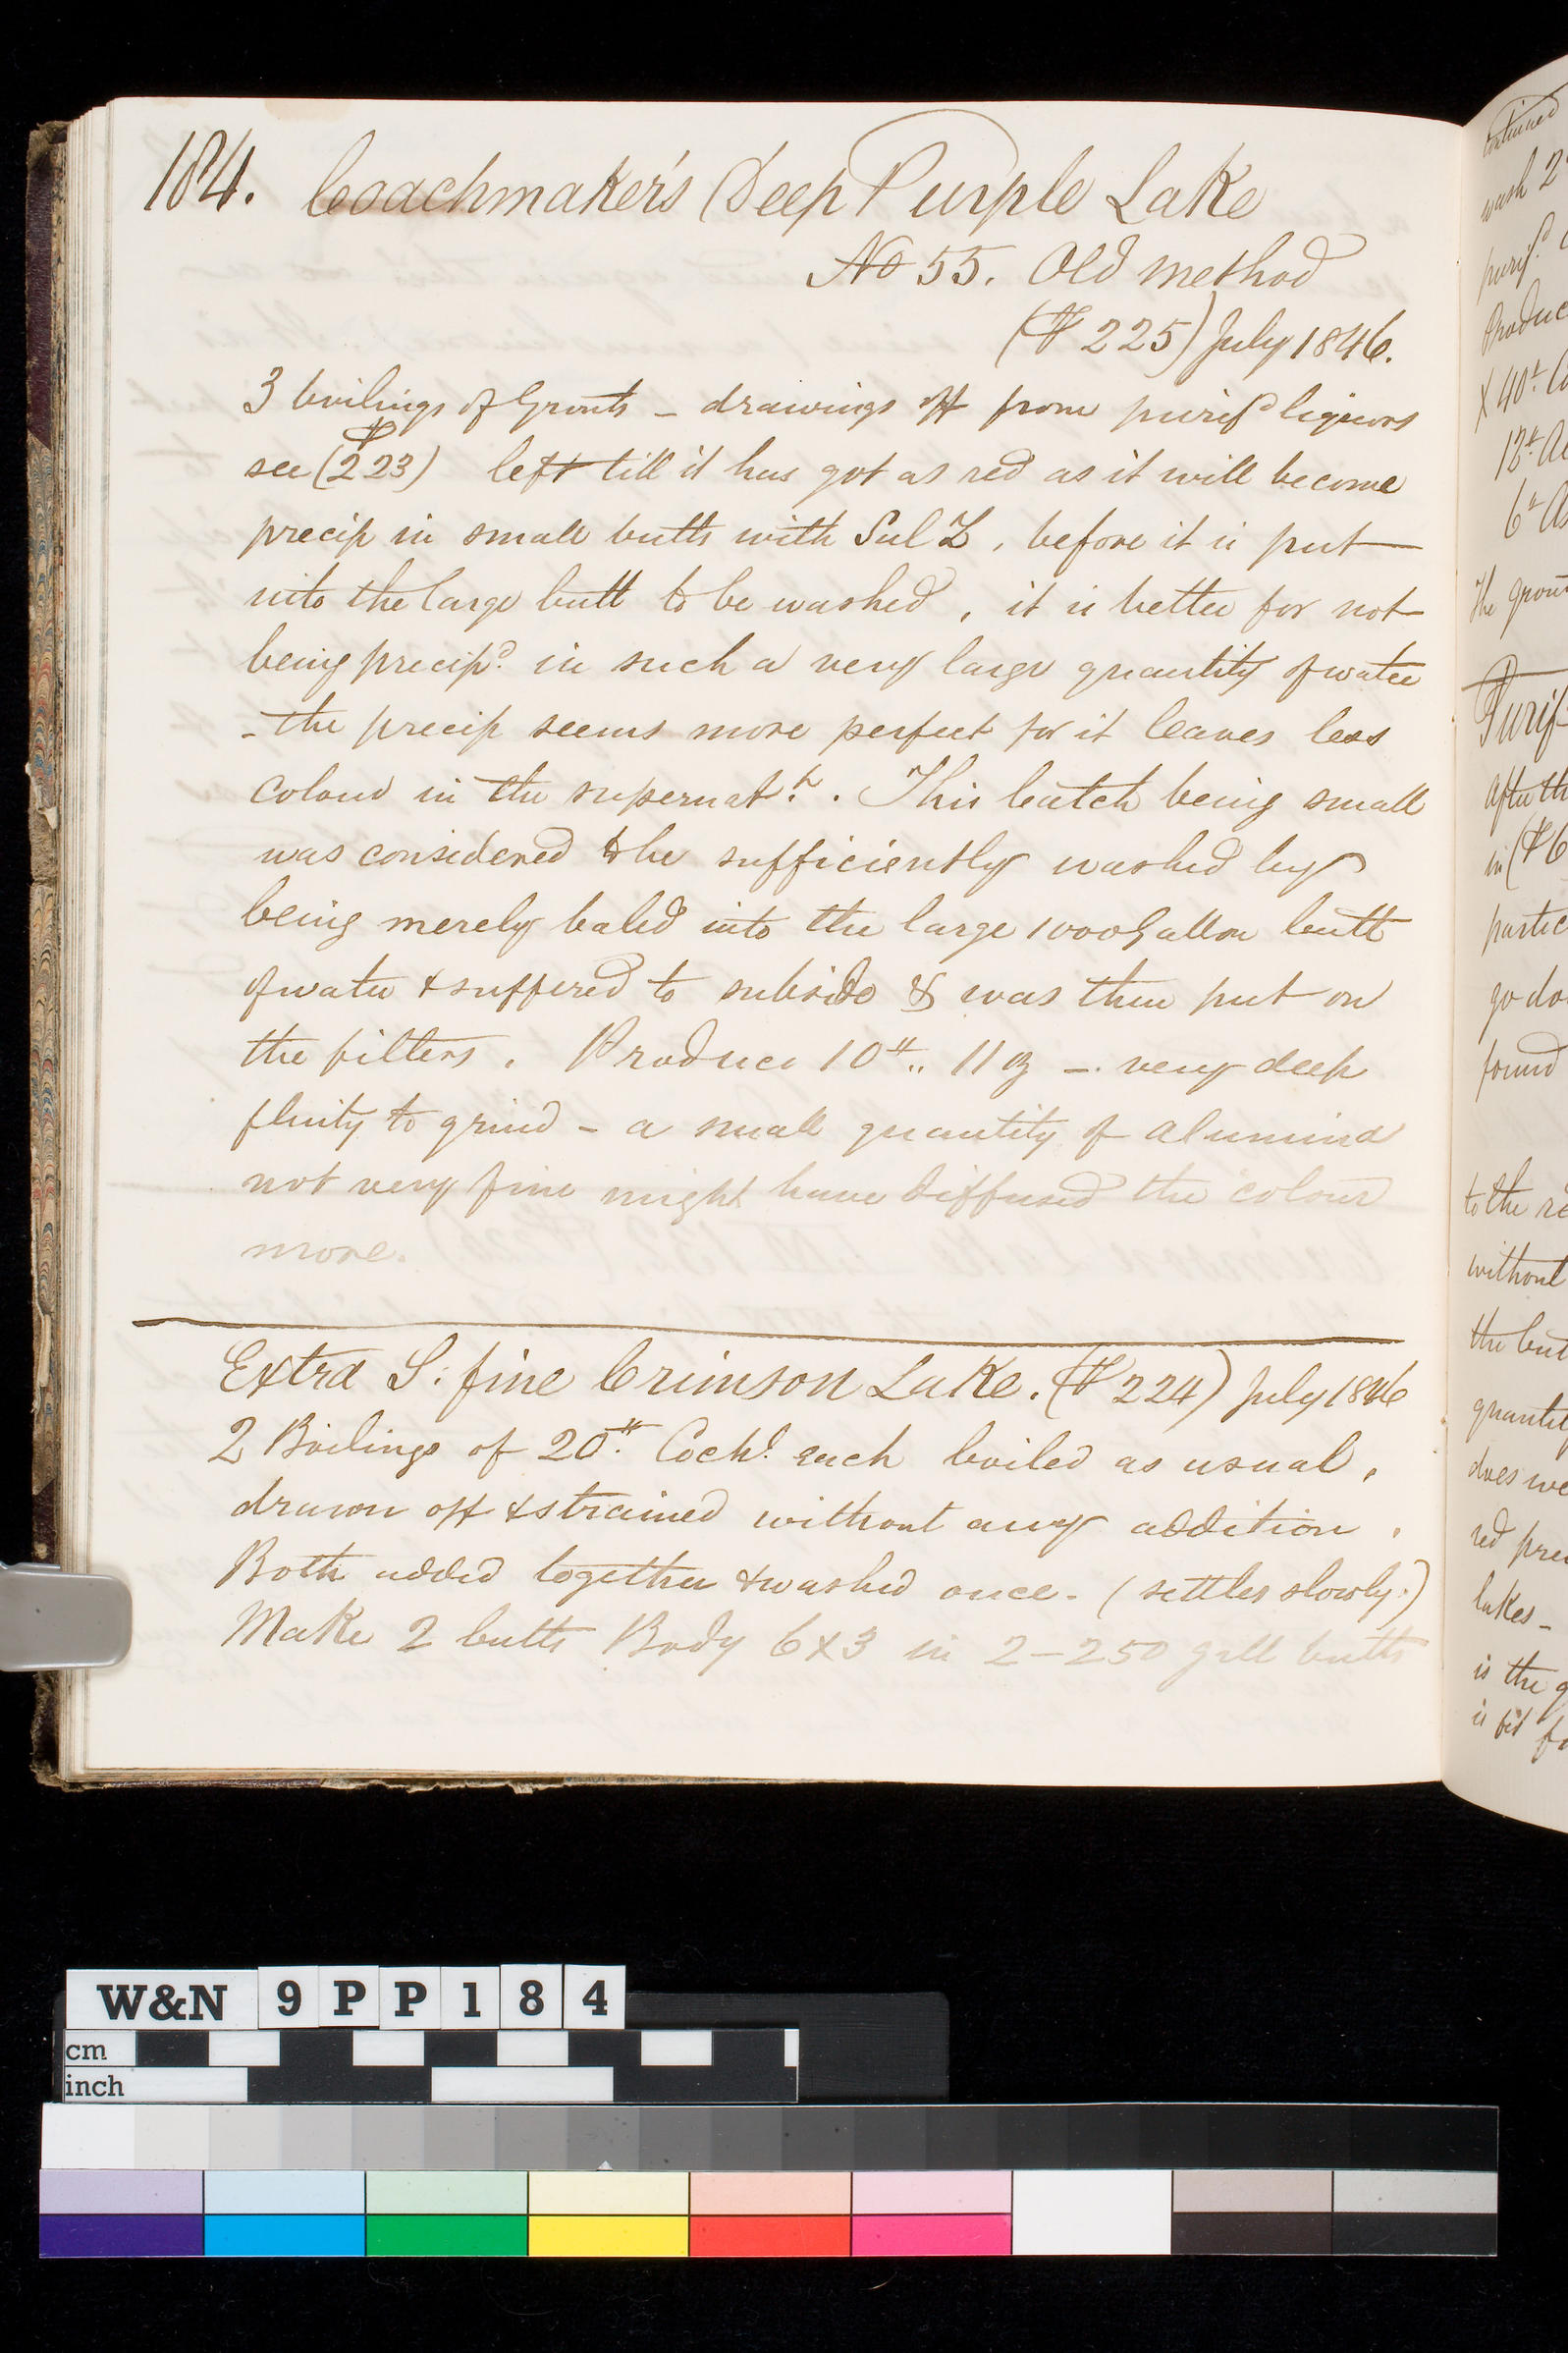 184. Coachmaker's Deep Purple Lake
No 55. Old method
(# 225) July 1846.
3 boilings of Grouts – drawings off from purifd liquors
see (# 223) left till it has got as red as it will become
precip in small butts with Sul Z, before it is put
into the large butt to be washed, it is better for not
being precipd. in such a very large quantity of water
- the precip seems more perfect for it leaves less
colour in the supernatt. This batch being small
was considered to be sufficiently washed by
being merely baled into the large 1000 Gallon butt
of water & suffered to subside & was then put on
the filters. Produce 10# .. 11 oz – very deep
flinty to grind – a small quantity of alumina
not very fine might have diffused the colour
more.
Extra S: fine Crimson Lake. (# 224) July 1846
2 Boilings of 20#. Cochl. each boiled as usual,
drawn off & strained without any addition.
Both added together & washed once. (settles slowly.)
Make 2 butts Body 6 x 3 in 2–250 gall butts
continued
wash 2
purifd.
Produc
X 40#. Co
12#. Al
6# A
The grou
Purif
After th
in (# 6
partic
go do
found
to the re
without
the but
quantit
does we
red prec
lakes –
is the g
is fit fo
W&N 9PP184
cm
inch